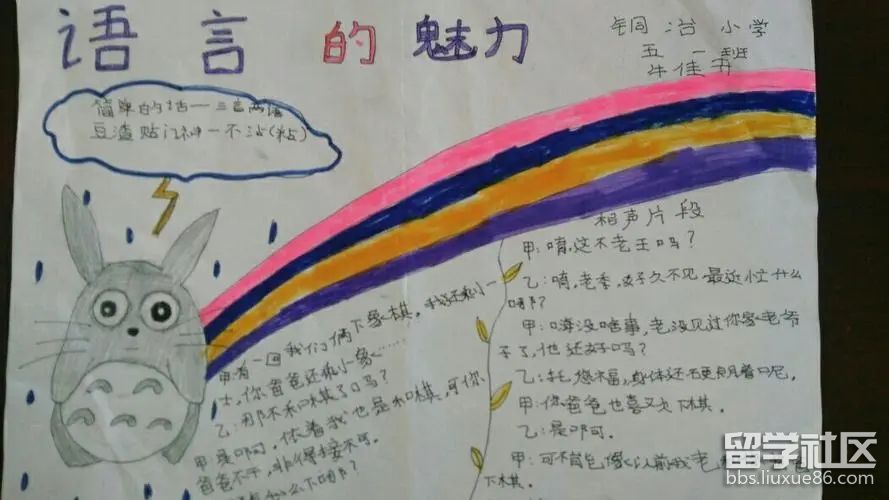 语言的魅力
铜冶小学
五一班
牛佳
简单的话一三言两语
豆渣贴门神一不沾(粘)
相声片段
甲:唷,这不老王吗?
乙:唷,老李,好久不见,最近忙什么
呢?
甲:嗨没啥事,老没见过你家老爷
子了,他还好吗?
乙:托您福,身体还硬朗着呢。
甲:你爸爸也喜欢下棋。
乙:是啊可。
甲:可不前包像以前我老
下棋。
甲:有一回我们俩下象棋,我还剩小一
士,你爸爸还剩小象……
乙:那不和棋了吗?
甲是啊,依着我也是和棋,可你
爸爸不干,非得接不可。
怎么下啊?
留学社区
bbs.liuxue86.com